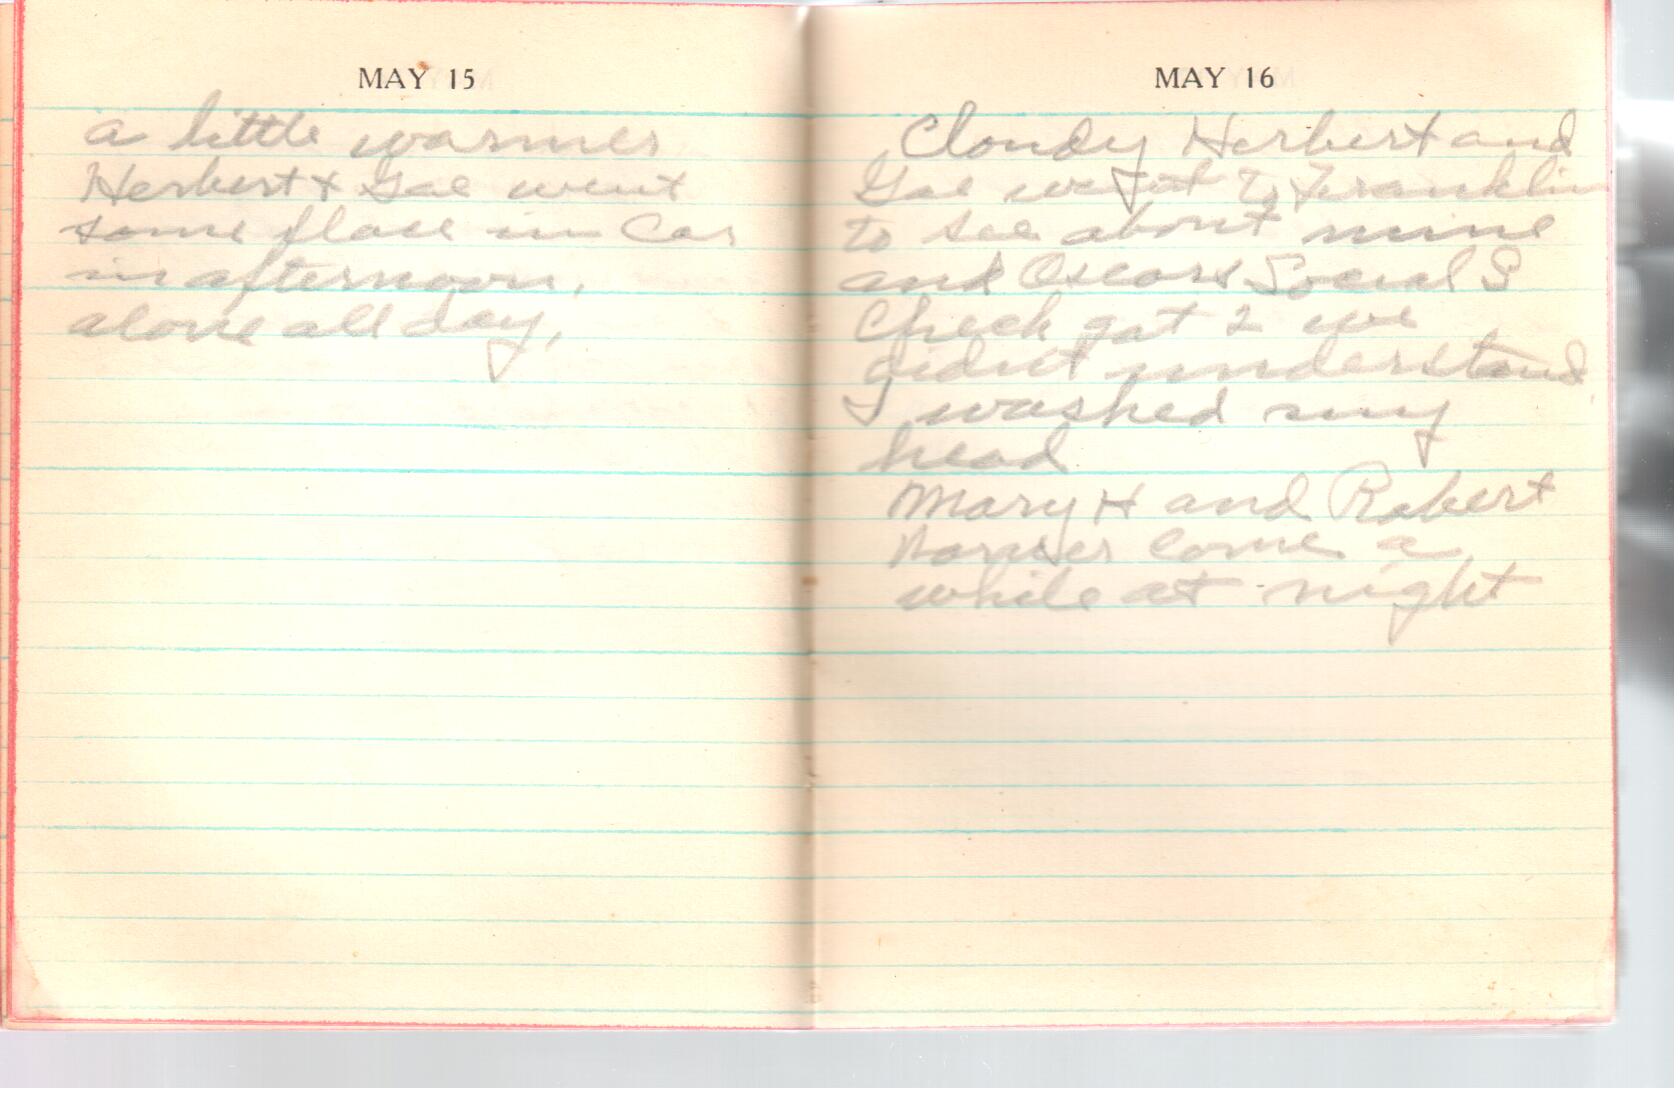 MAY 15
a little warmer
Herbert + Gae went
some place in Car
in afternoon,
alone all day,
MAY 16
Cloudy Herbert and
Gae went to Franklin
to see about mine
and Oscars Social S
Check got 2 we
didnt understand
I washed my
head
Mary H and Robert
come a
while at night